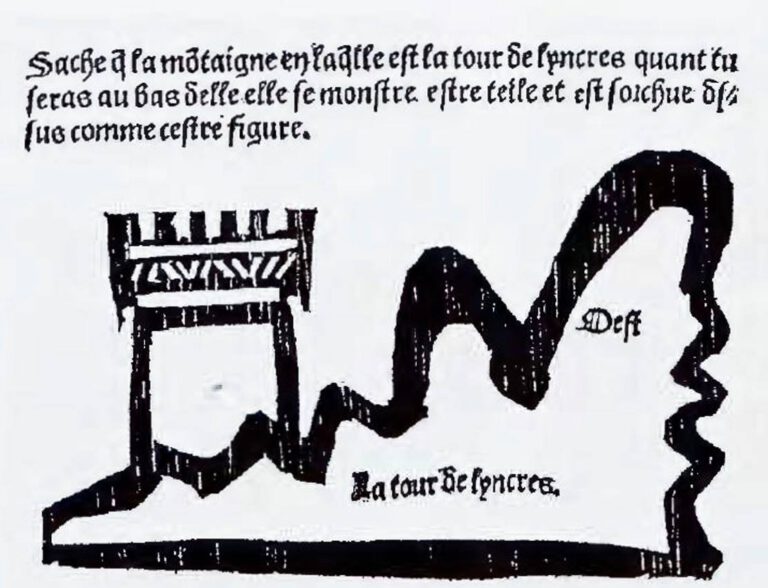 Sache q̃ la mõtaigne en laq̃lle est la tour de lyncres quant tu
seras au bas delle elle se monstre estre telle et est forchue dess⸗
sus comme ceste figure.
Oest
La tour de lyncres.